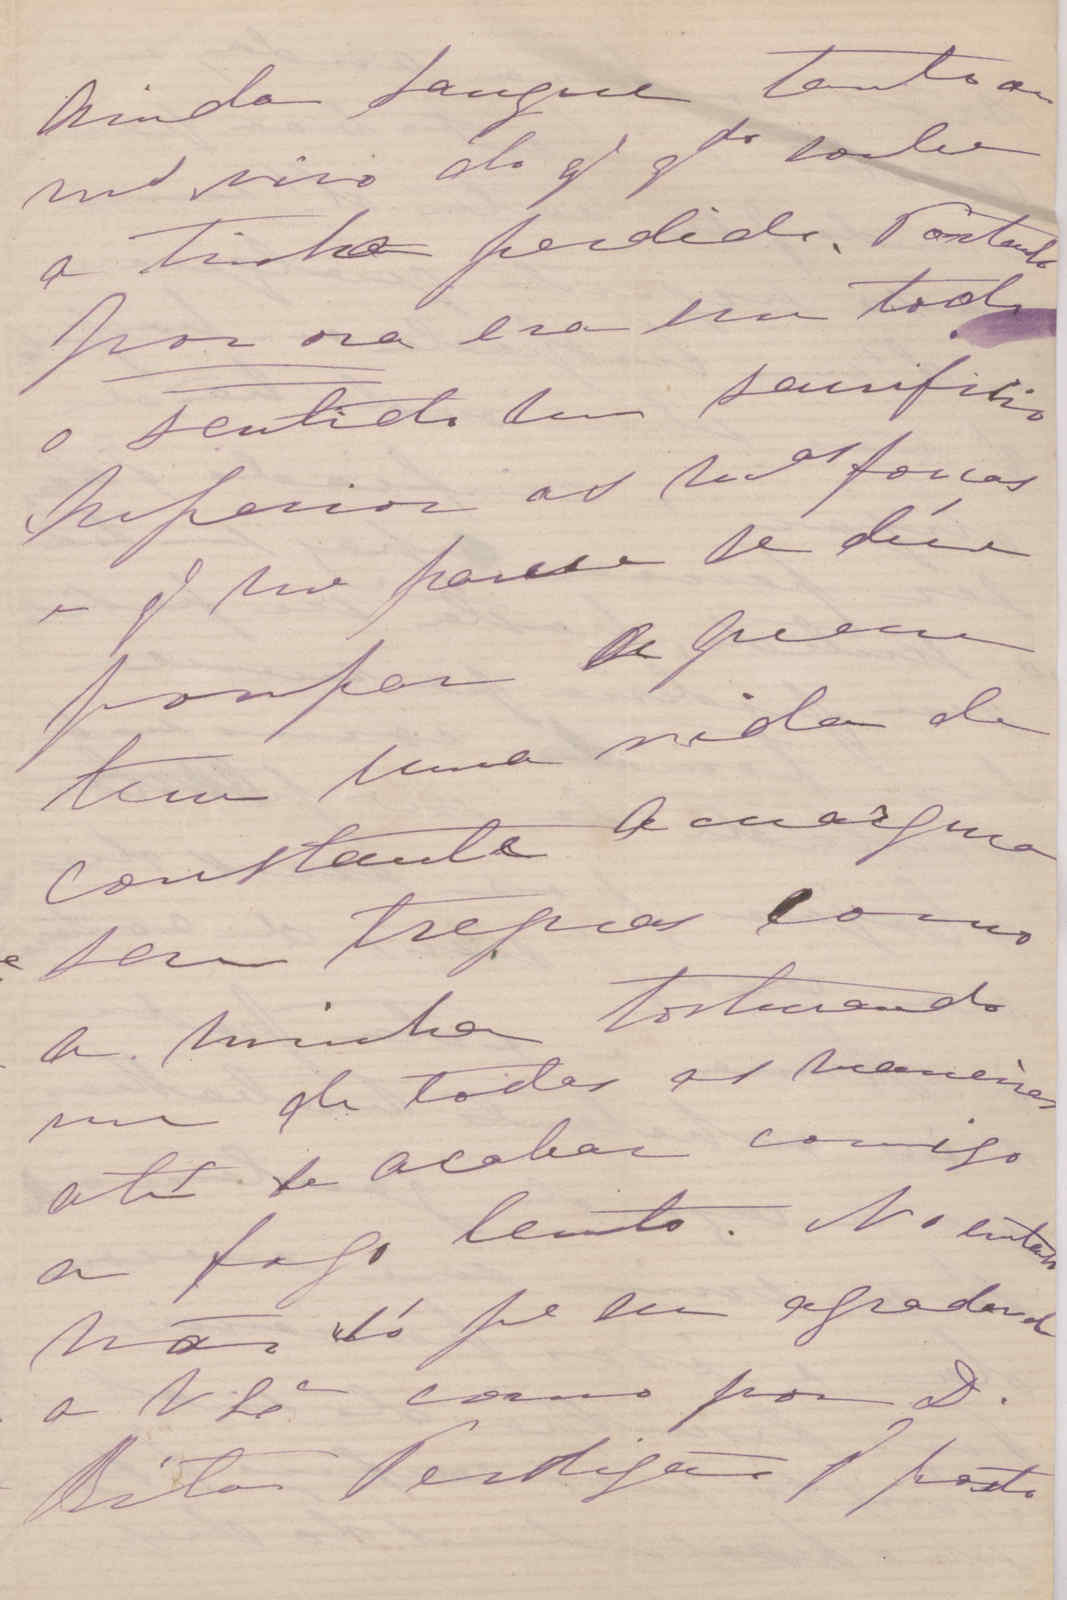 ainda sangue tanto ou
ms vivo do q' qdo soube
a tinha perdida. Portanto
por ora era em todo
o sentido um sacrificio
superior as mas forças
e q' me parece se deve
poupar a quem
tem uma vida de
constante amargura
sem treguas como
a minha torturando
me de todas as maneiras
até se acabar comigo
a fogo lento. No entanto
não só pa em agradando
a V Exa como por D.
Rita Perdigão q' posto